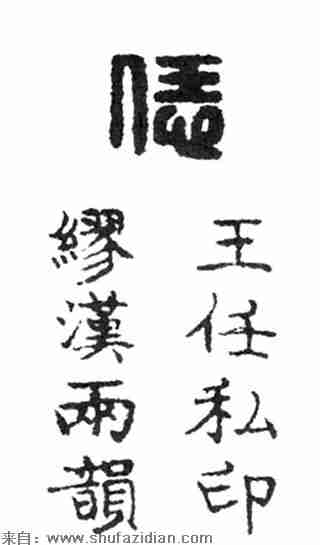 王任私印
繆漢兩韻
来自：www.shufazidian.com